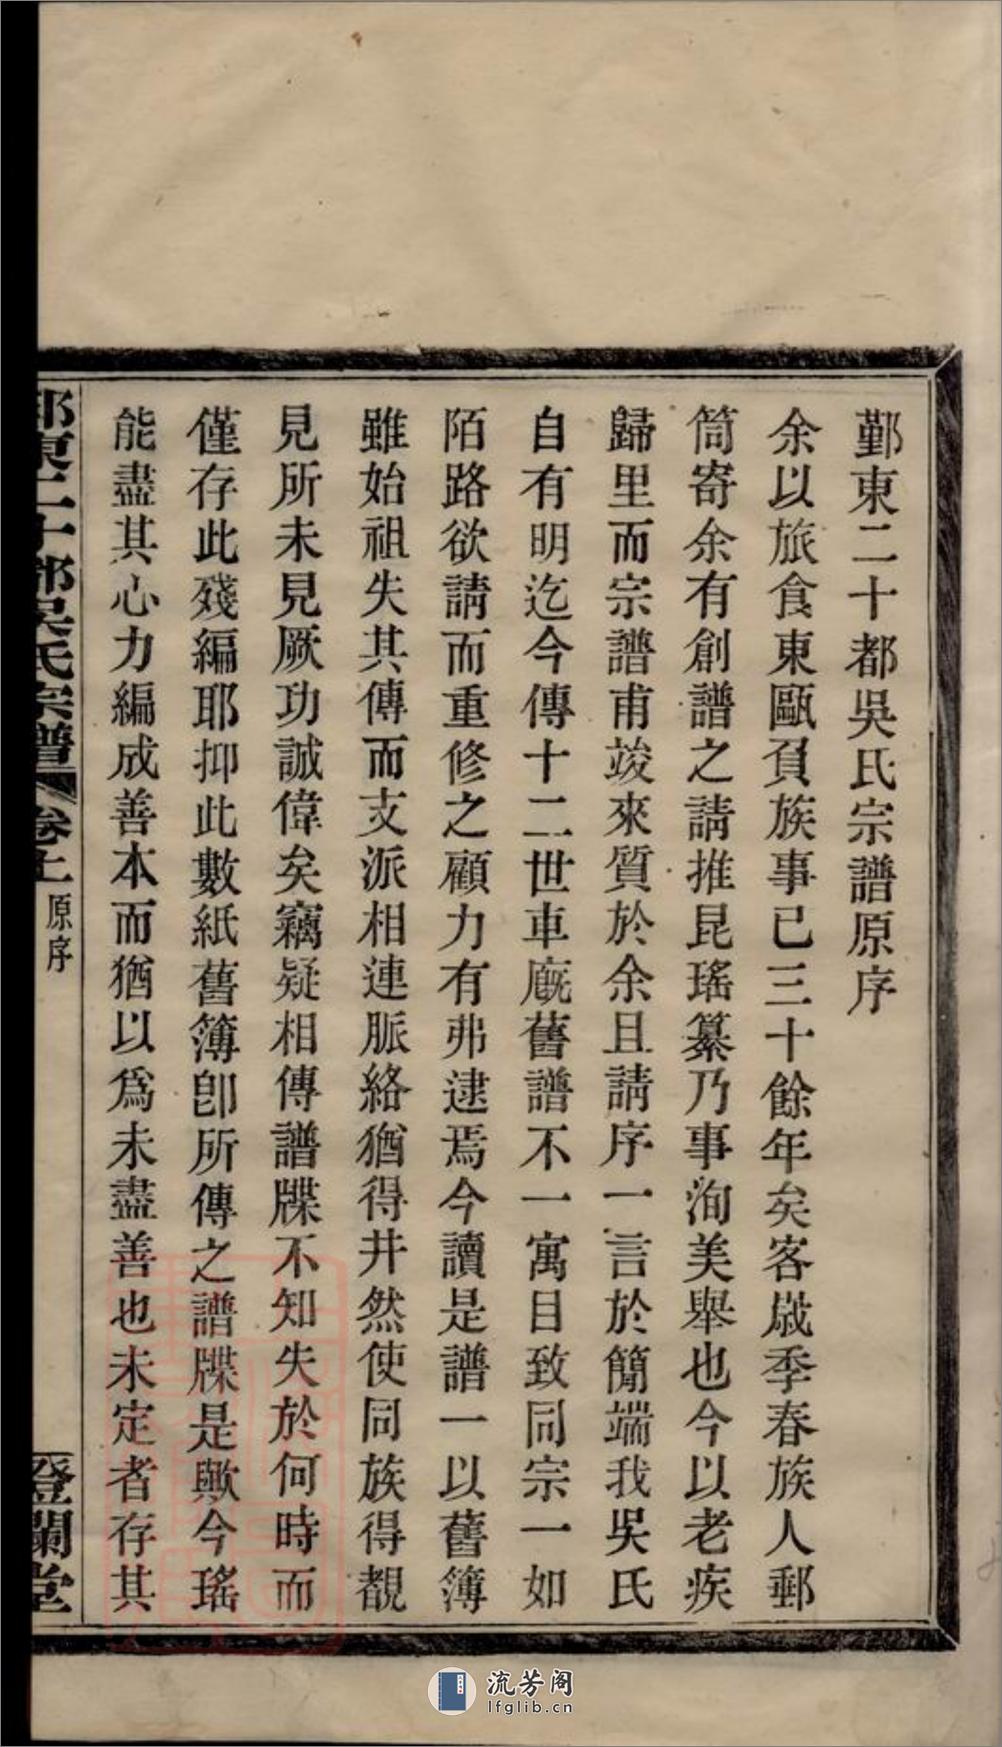 鄞東二十都吳氏宗譜原序
余以旅食東甌負族事已三十餘年矣客歲季春族人郵
筒寄余有創譜之請推昆瑤纂乃事洵美舉也今以老疾
歸里而宗譜甫竣來質於余且請序一言於簡端我吳氏
自有明迄今傳十二世車廐舊譜不一寓目致同宗一如
陌路欲請而重修之顧力有弗逮焉今讀是譜一以舊簿
雖始祖失其傳而支派相連脈絡猶得井然使同族得覩
見所未見厥功誠偉矣竊疑相傳譜牒不知失於何時而
僅存此殘編耶抑此數紙舊簿卽所傳之譜牒是歟今瑤
能盡其心力編成善本而猶以爲未盡善也未定者存其
鄞東二十都吳氏宗譜 卷上 原序 登闌堂
流芳阁
lfglib.cn